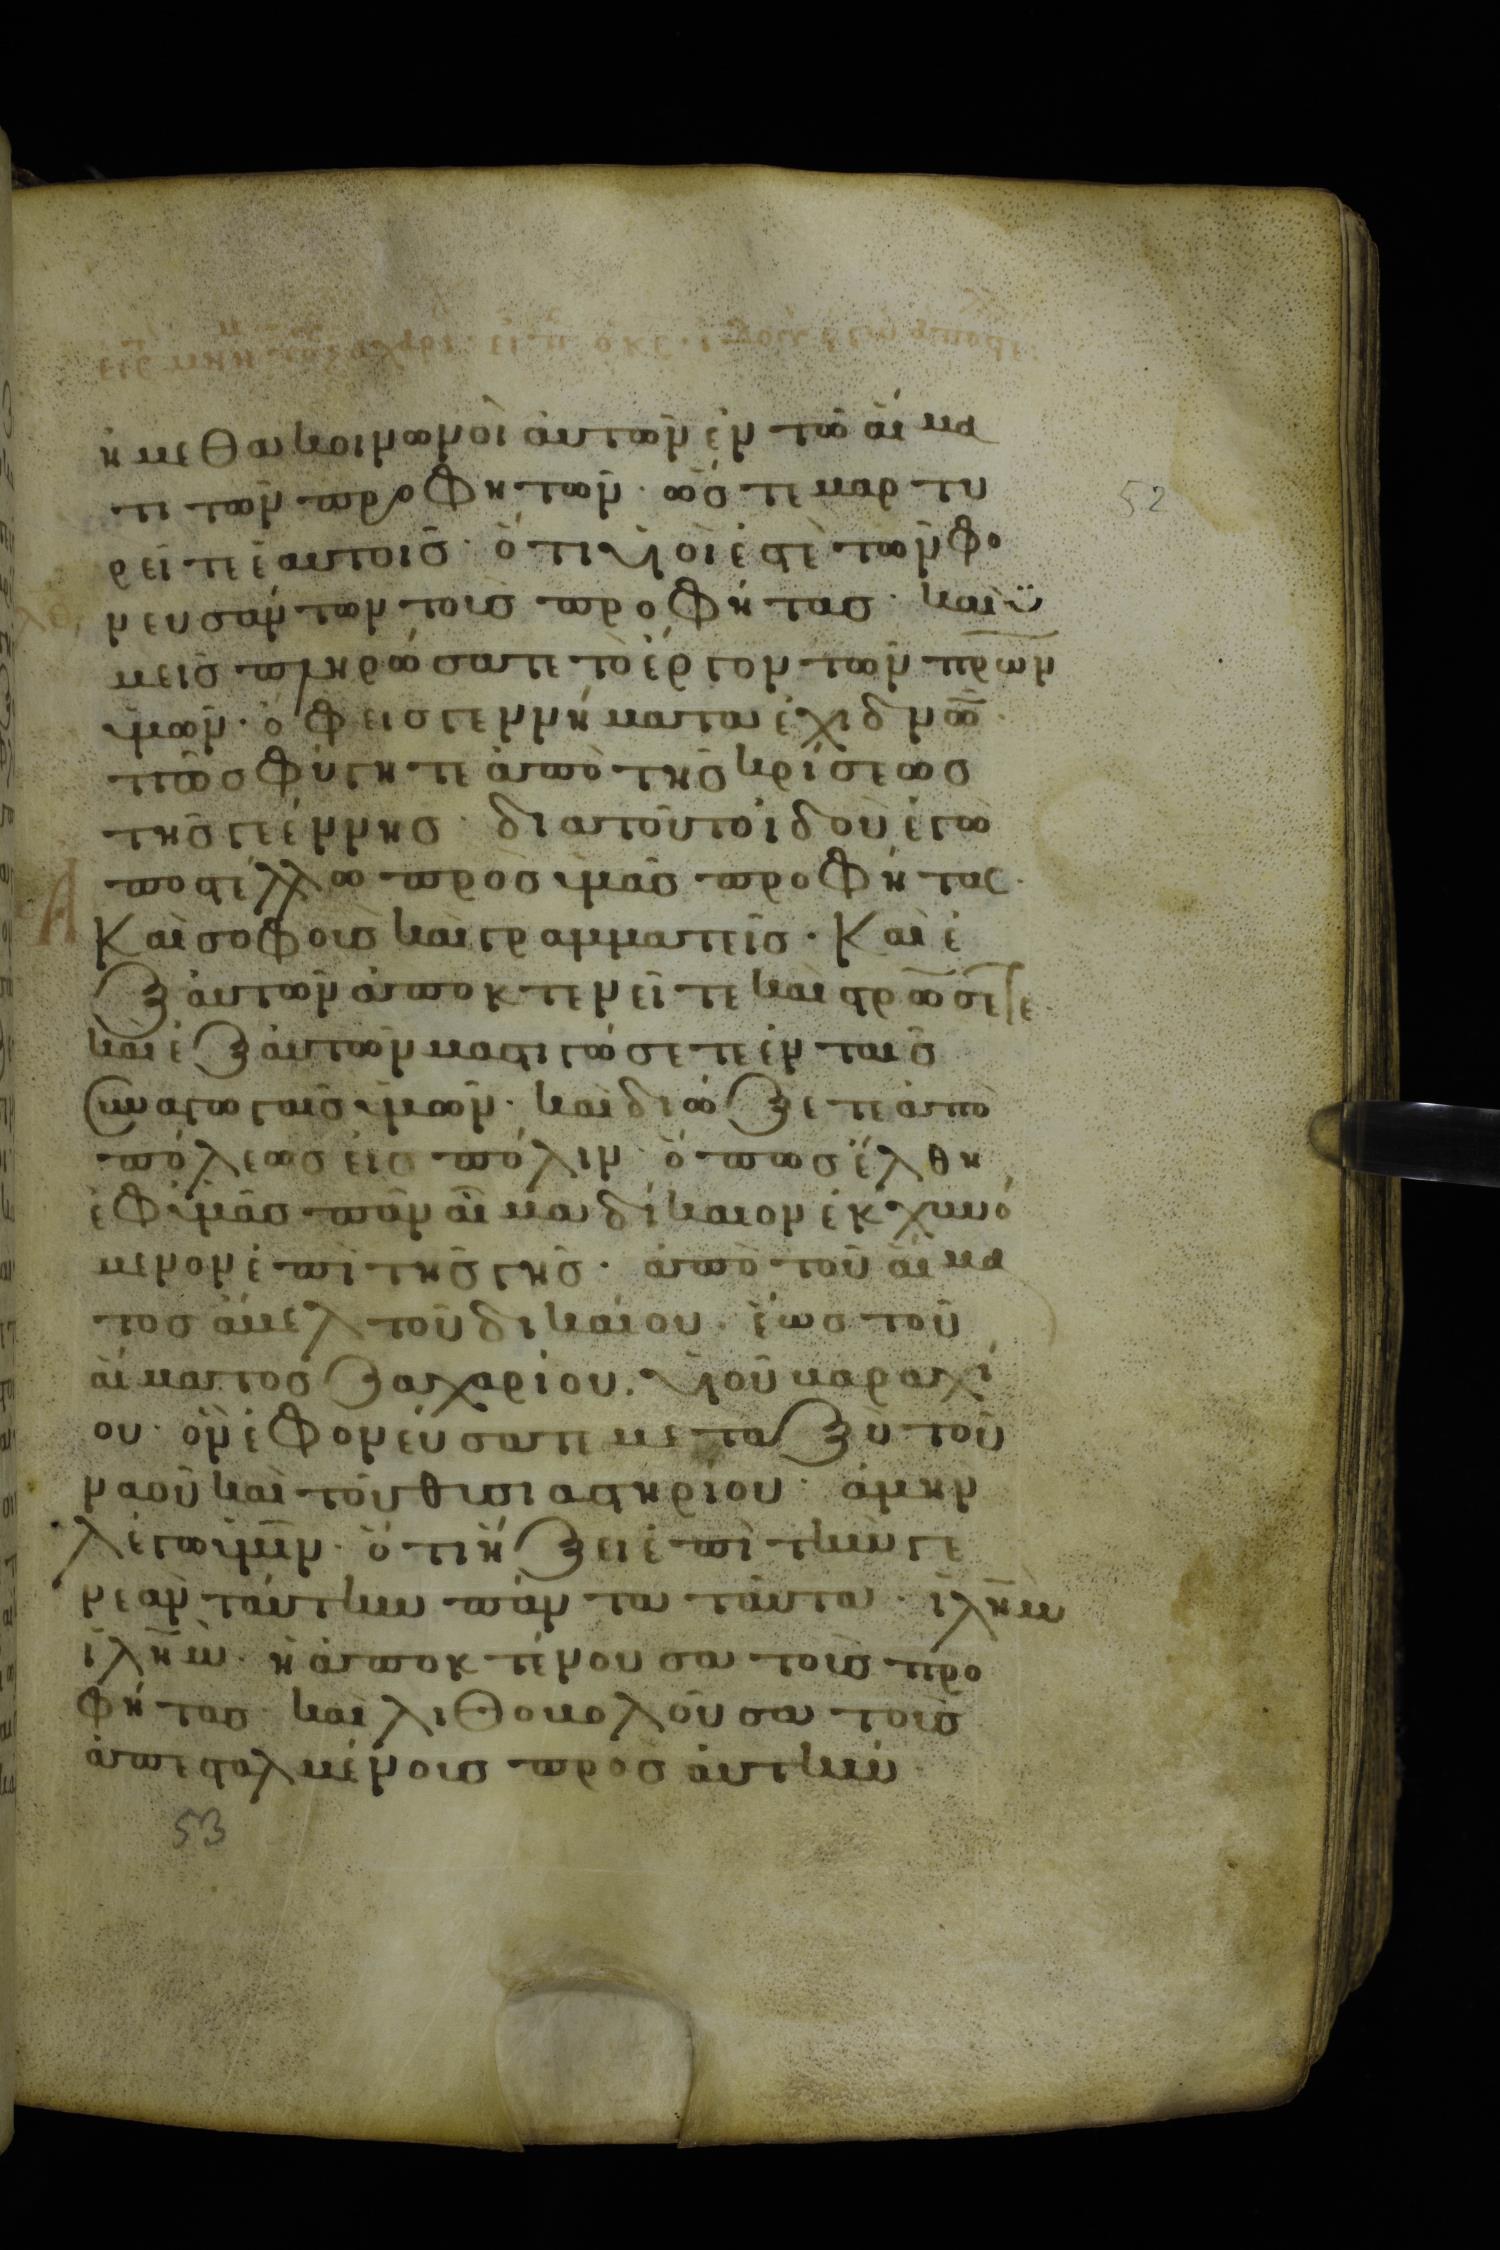 ήμεθα κοινωνοὶ αὐτῶν ἐν τῶ αἵμα
τι τῶν προφητῶν· ὥστε μαρτυ
ρεῖτε ἑαυτοῖς· ὅτι υἱοί ἐστὲ τῶν φο
νευσάντων τοὺς προφήτας· καὶ ϋ
μεῖς πληρώσατε τὸ μέτρον τῶν πρων
ὑμῶν· ὄφεις γεννήματα ἐχιδνῶ·
πῶς φύγητε ἀπὸ τῆς κρίσεως
τῆς γεέννης· διατοῦτο ἰδοὺ ἐγὼ
ἀποστέλλω πρὸς ὑμᾶς προφήτας·
Καὶ σοφοὺς καὶ γραμματεῖς· Καὶ ἐ
ξ αὐτῶν ἀποκτενεῖτε καὶ στρώσετε·
καὶ ἐξ αὐτῶν μαστιγώσετε ἐν ταῖς
συναγωγαῖς ὑμῶν· καὶ διώξετε ἀπὸ
πόλεως εἰς πόλιν· ὅπως ἔλθη
ἐφ ὑμᾶς πᾶν αἷμα δίκαιον ἐκχυνό
μενον ἐπὶ τῆς γῆς· ἀπὸ τοῦ αἵμα
τος ἄβελ τοῦ δικαίου· ἕως τοῦ
αἵματος Ζαχαρίου· υἱοῦ βαραχί
ου· ὃν ἐφονεύσατε μεταξὺ τοῦ
ναοῦ καὶ τοῦ θυσιαστηρίου· ἀμὴν
λέγω ὑμῖν· ὅτι ἥξει ἐπὶ τὴν γε
νεὰν ταύτην πάντα ταῦτα· ἰλὴμ
ἰλὴμ· ἡ ἀποκτένουσα τοὺς προ
φήτας· καὶ λιθοβολοῦσα τοὺς
ἀπεσταλμένους πρὸς αὐτήν·
52
53